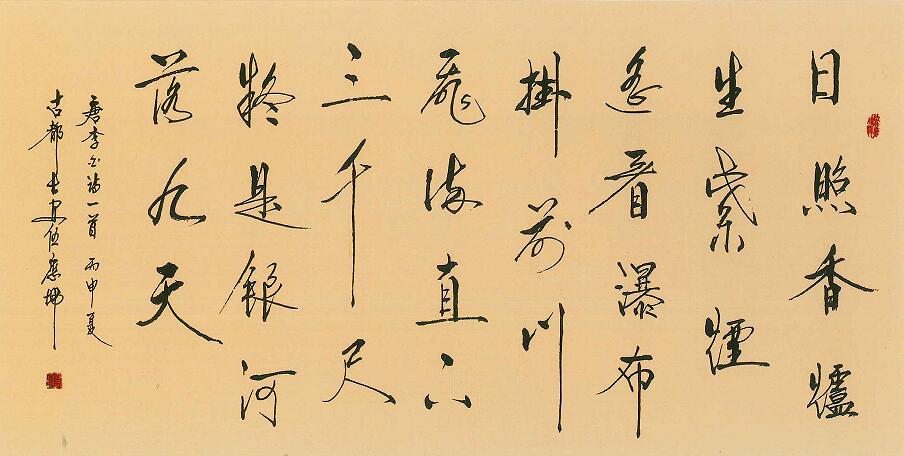 日照香爐
生紫煙
遙看瀑布
掛前川
飛流直下
三千尺
疑是銀河
落九天
唐李白詩一首 丙申夏
古都长安